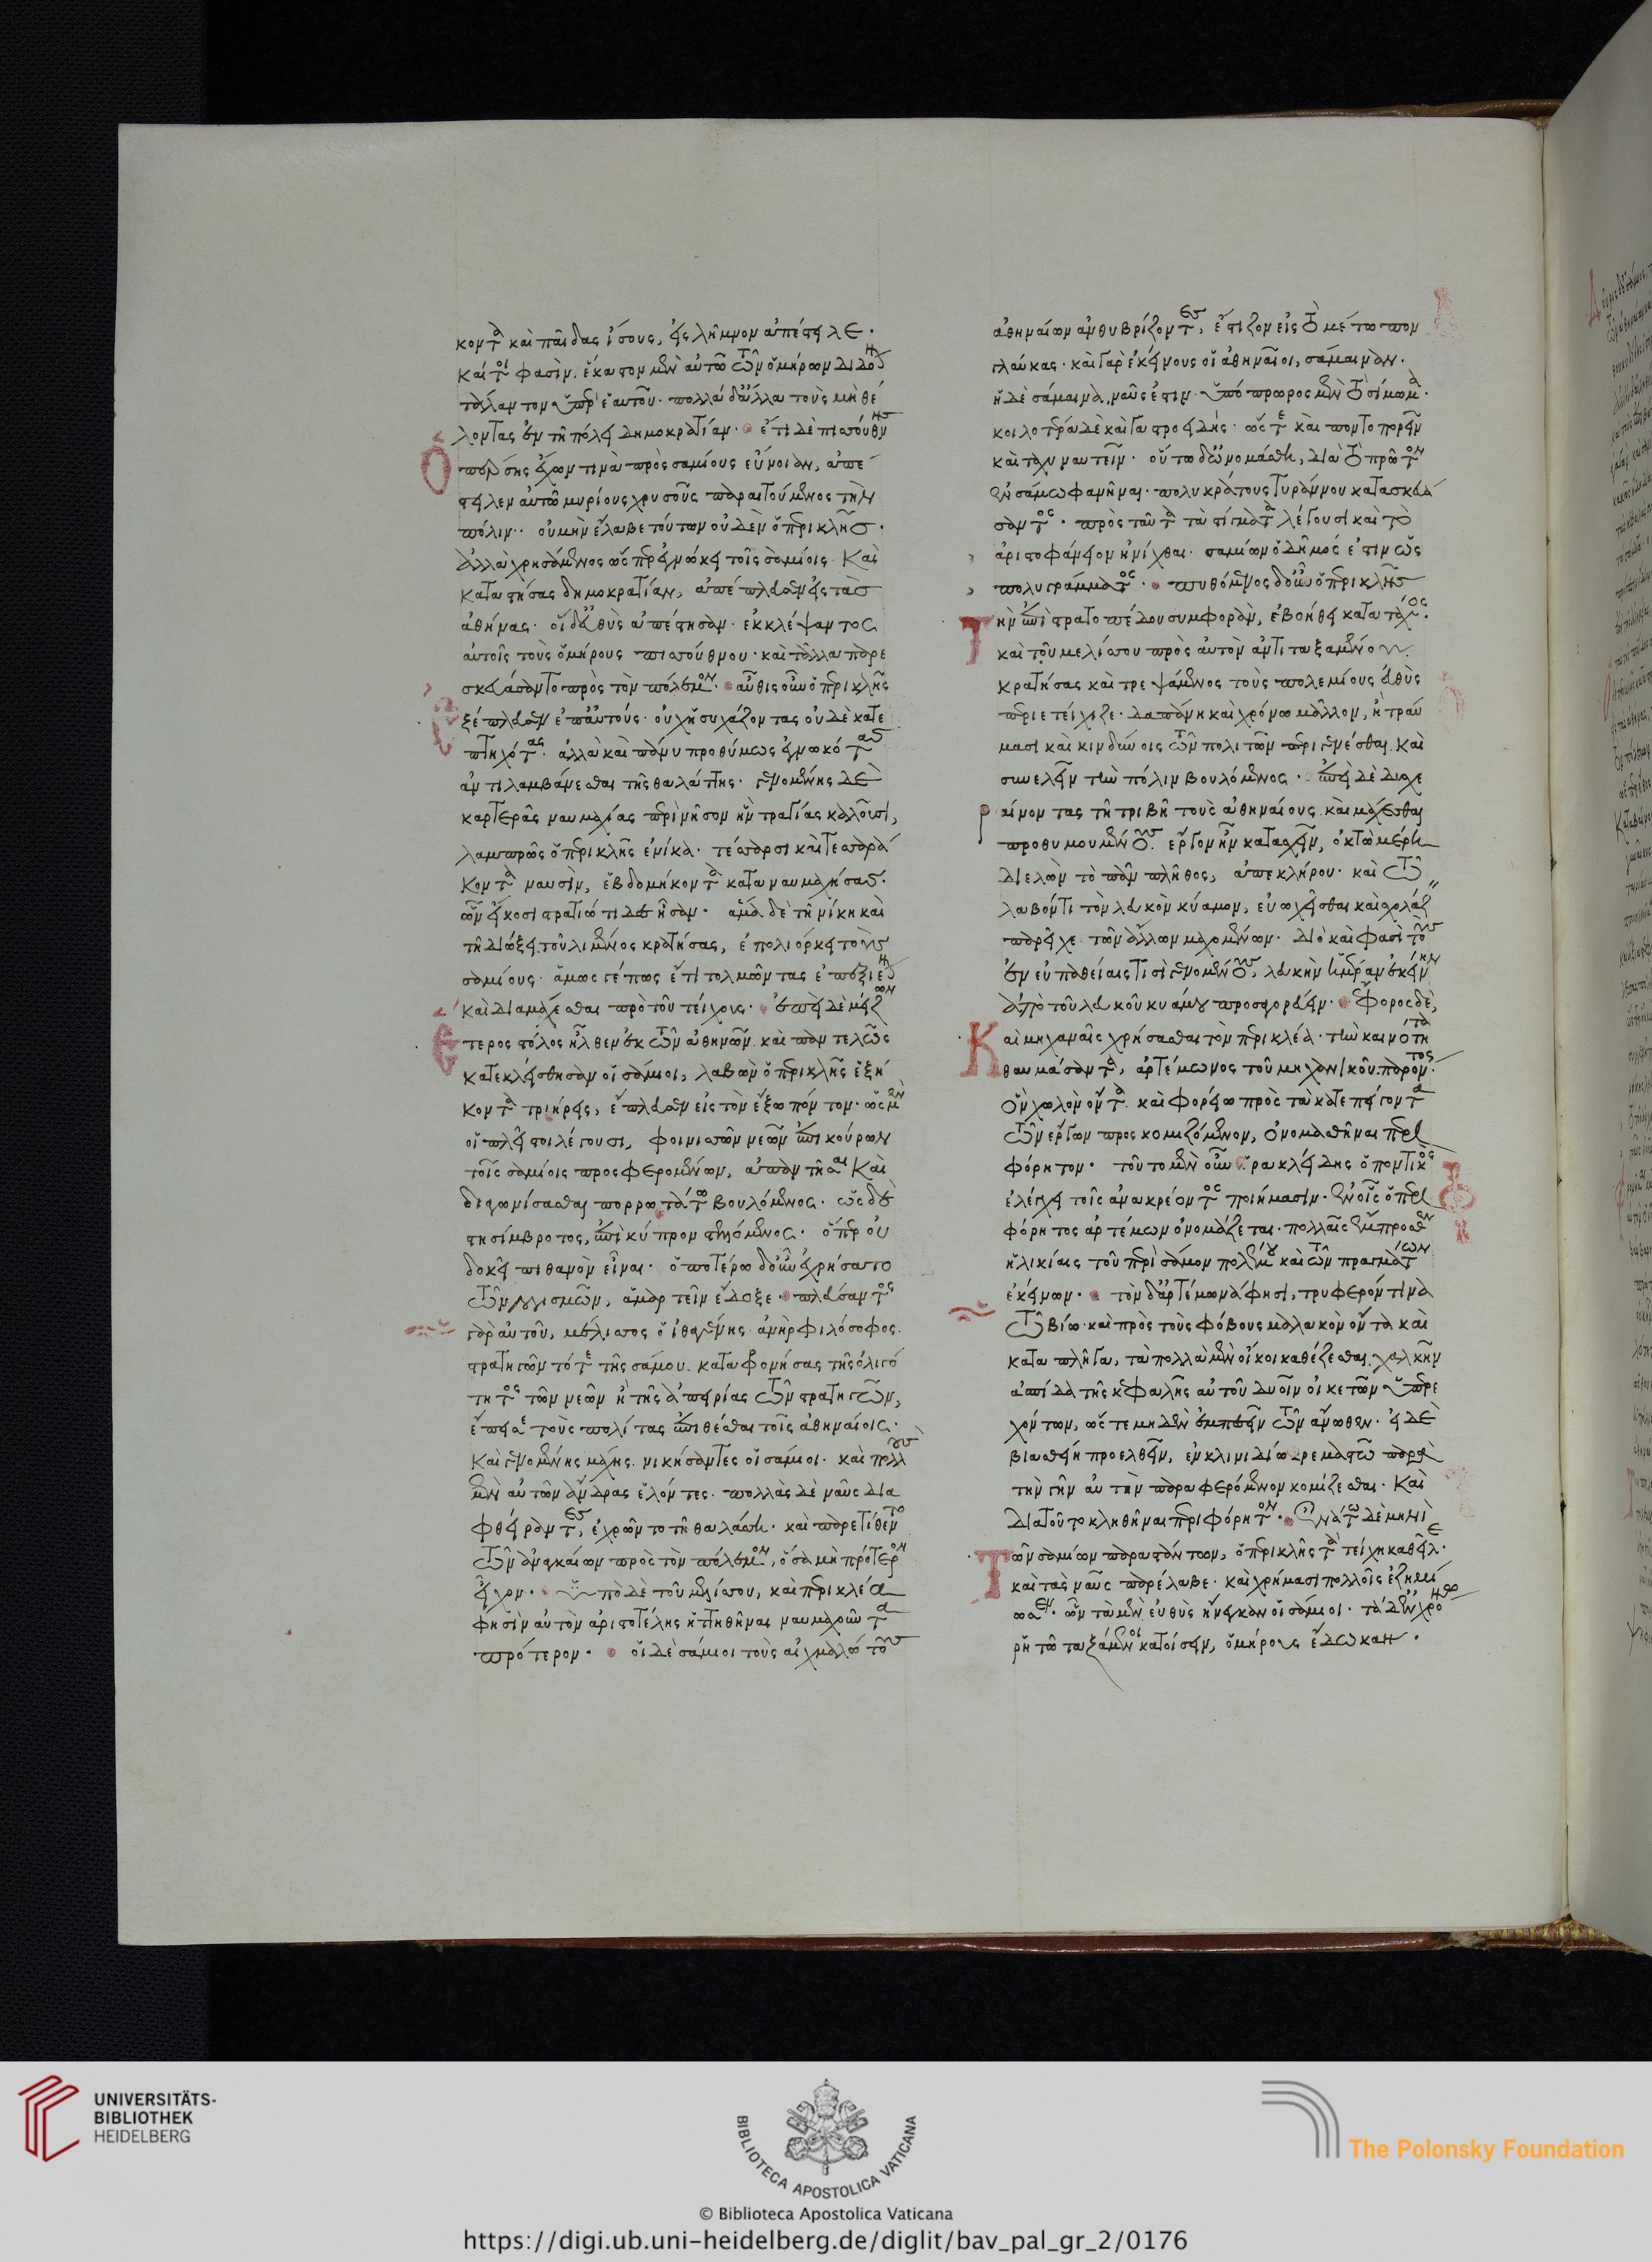 κοντα καὶ παῖδας ἴσους, εἰς λῆμνον ἀπέστειλε.
καίτοι φασὶν. ἕκαστον μὲν αὐτῶ τῶν ὁμήρων διδο
τάλαντον ὑπὲρ ἑαυτοῦ. πολλὰ δ' ἄλλα τοὺς μὴ θέ
λοντας ἐν τῆ πόλει δημοκρατίαν. ἔτι δὲ πισσούθνης
Ὁ πέρσης ἔχων τινὰ πρὸς σαμίους εὔνοιαν, ἀπέ
στειλεν αὐτῶ μυρίους χρυσοῦς παραιτούμενος τὴν
πόλιν. οὐ μὴν ἔλαβε τούτων οὐδὲν ὁ περικλῆς.
ἀλλὰ χρησάμενος ὥσπερ ἐγνώκει τοῖς σαμίοις. Καὶ
καταστήσας δημοκρατίαν, ἀπέπλευσεν εἰς τὰς
ἀθήνας. οἱ δ' εὐθὺς ἀπέστησαν. ἐκκλέψαντος
αὐτοῖς τοὺς ὁμήρους πισσούθνου. καὶ τἄλλα παρε
σκευάσαντο πρὸς τὸν πόλεμον. αὖθις οὖν ὁ περικλῆς
Ἐξέπλευσεν ἐπ' αὐτούς. οὐχ ἡσυχάζοντας οὐδὲ κατε
πτηχότας. ἀλλὰ καὶ πάνυ προθύμως ἐγνωκότας
ἀντιλαμβάνεσθαι τῆς θαλάττης. γενομένης δὲ
καρτερᾶς ναυμαχίας περὶ νῆσον ἣν τραγίας καλοῦσι,
λαμπρῶς ὁ περικλῆς ἐνίκα. τέσσαρσι καὶ τεσσαρά
κοντα ναυσὶν, ἑβδομήκοντα καταναυμαχήσας.
ὧν εἴκοσι στρατιώτιδες ἦσαν. ἅμα δὲ τῆ νίκη καὶ
τῆ διώξει τοῦ λιμένος κρατήσας, ἐπολιόρκει τοὺς
σαμίους. ἄμως γέ πως ἔτι τολμῶντας ἐπεξιέ
καὶ διαμάχεσθαι πρὸ τοῦ τείχους. ἐπεὶ δὲ μείζων
Ἕτερος στόλος ἦλθεν ἐκ τῶν ἀθηνῶν. καὶ παντελῶς
κατεκλείσθησαν οἱ σάμιοι, λαβὼν ὁ περικλῆς ἑξή
κοντα τριήρεις, ἔπλευσεν εἰς τὸν ἔξω πόντον. ὡς μὲν
οἱ πλεῖστοι λέγουσι, φοινισσῶν νεῶν ἐπικούρων
τοῖς σαμίοις προσφερομένων, ἀπαντῆσαι Καὶ
διαγωνίσασθαι πορρωτάτω βουλόμενος. ὡς δὲ
στησίμβροτος, ἐπὶ κύπρον στελλόμενος. ὅπερ οὐ
δοκεῖ πιθανὸν εἶναι. ὁποτέρω δ' οὖν ἐχρήσατο
τῶν λογισμῶν, ἁμαρτεῖν ἔδοξε. πλεύσαντος
γὰρ αὐτοῦ, μέλισσος ὁ ἰθαγένης ἀνὴρ φιλόσοφος.
στρατηγῶν τότε τῆς σάμου. καταφρονήσας τῆς ὀλιγό
τητος τῶν νεῶν ἢ τῆς ἀπειρίας τῶν στρατηγῶν,
ἔπεισε τοὺς πολίτας ἐπιθέσθαι τοῖς ἀθηναίοις.
Καὶ γενομένης μάχης. νικήσαντες οἱ σάμιοι. καὶ πολλοὺς
μὲν αὐτῶν ἄνδρας ἑλόντες. πολλὰς δὲ ναῦς δια
φθείραντες, ἐχρῶντο τῆ θαλάσση. καὶ παρετίθεντο
τῶν ἀναγκαίων πρὸς τὸν πόλεμον, ὅσα μὴ πρότερον
εἶχον. ὑπὸ δὲ τοῦ μελίσσου, καὶ περικλέα
φησὶν αὐτὸν ἀριστοτέλης ἡττηθῆναι ναυμαχοῦντα
πρότερον. οἱ δὲ σάμιοι τοὺς αἰχμαλώτους
ἀθηναίων ἀνθυβρίζοντες, ἔστιζον εἰς τὸ μέτωπον
γλαύκας. καὶ γὰρ ἐκείνους οἱ ἀθηναῖοι, σάμαιναν.
ἡ δὲ σάμαινα, ναῦς ἐστιν. ὑπόπρωρος μὲν τὸ σίμωμα.
κοιλοτέρα δὲ καὶ γαστροειδής. ὥστε καὶ ποντοπορεῖν
καὶ ταχυναυτεῖν. οὕτω δ' ὠνομάσθη, διὰ τὸ πρῶτον
ἐν σάμω φανῆναι. πολυκράτους τυράννου κατασκευά
σαντος. πρὸς ταῦτα τὰ στίγματα λέγουσι καὶ τὸ
ἀριστοφάνειον ἠνίχθαι. σαμίων ὁ δῆμός ἐστιν ὡς
πολυγράμματος. πυθόμενος δ' οὖν ὁ περικλῆς
Τὴν ἐπὶ στρατοπέδου συμφορὰν, ἐβοήθει κατὰ τάχος.
καὶ τοῦ μελίσσου πρὸς αὐτὸν ἀντιταξαμένου.
κρατήσας καὶ τρεψάμενος τοὺς πολεμίους εὐθὺς
περιετείχιζε. δαπάνη καὶ χρόνω μᾶλλον, ἢ τραύ
μασι καὶ κινδύνοις τῶν πολιτῶν περιγενέσθαι. καὶ
συνελεῖν τὴν πόλιν βουλόμενος. ἐπεὶ δὲ δυσχε
ραίνοντας τῆ τριβῆ τοὺς ἀθηναίους. καὶ μάχεσθαι
προθυμουμένους. ἔργον ἦν κατασχεῖν, ὀκτὼ μέρη
διελὼν τὸ πᾶν πλῆθος, ἀπεκλήρου. καὶ τῶ
λαβόντι τὸν λευκὸν κύαμον, εὐωχεῖσθαι καὶ σχολάζ
παρεῖχε τῶν ἄλλων μαχομένων. διὸ καὶ φασὶ τοὺς
ἐν εὐπαθείαις τισὶ γενομένους, λευκὴν ἡμέραν ἐκείνην
ἀπὸ τοῦ λευκοῦ κυάμου προσαγορεύειν. ἔφορος δὲ,
Καὶ μηχαναῖς χρήσασθαι τὸν περικλέα. τὴν καινότητα
θαυμάσαντα, ἀρτέμωνος τοῦ μηχανικοῦ. παρόντος.
ὃν χωλὸν ὄντα. καὶ φορείω πρὸς τὰ κατεπείγοντα
τῶν ἔργων προσκομιζόμενον, ὀνομασθῆναι περι
φόρητον. τοῦτο μὲν οὖν ἡρακλείδης ὁ ποντικὸς
ἐλέγχει τοῖς ἀνακρέοντος ποιήμασιν. ἐν οἷς ὁ περι
φόρητος ἀρτέμων ὀνομάζεται. πολλαῖς ἔμπροσθεν
ἡλικίαις τοῦ περὶ σάμον πολέμου καὶ τῶν πραγμάτων
ἐκείνων. τὸν δ' ἀρτέμωνά φησι, τρυφερόν τινα
τῶ βίω. καὶ πρὸς τοὺς φόβους μαλακὸν ὄντα καὶ
καταπλῆγα, τὰ πολλὰ μὲν οἴκοι καθέζεσθαι. χαλκῆν
ἀσπίδα τῆς κεφαλῆς αὐτοῦ δυοῖν οἰκετῶν ὑπερε
χόντων, ὥστε μηδὲν ἐμπεσεῖν τῶν ἄνωθεν. εἰ δὲ
βιασθείη προελθεῖν, ἐν κλινιδίω κρεμαστῶ παρὰ
τὴν γῆν αὐτὴν περιφερόμενον κομίζεσθαι. Καὶ
διὰ τοῦτο κληθῆναι περιφόρητον. ἐνάτω δὲ μηνὶ
Τῶν σαμίων παραστάντων, ὁ περικλῆς τὰ τείχη καθεῖλε.
καὶ τὰς ναῦς παρέλαβε. καὶ χρήμασι πολλοῖς ἐζημί
ωσεν. ὧν τὰ μὲν εὐθὺς ἤνεγκαν οἱ σάμιοι. τὰ δ' ἐν χρό
ρητῶ ταξάμενοι κατοίσειν, ὁμήρους ἔδωκαν.
UNIVERSITÄTS-
BIBLIOTHEK
HEIDELBERG
BIBLIOTECA APOSTOLICA VATICANA
The Polonsky Foundation
© Biblioteca Apostolica Vaticana
https://digi.ub.uni-heidelberg.de/diglit/bav_pal_gr_2/0176